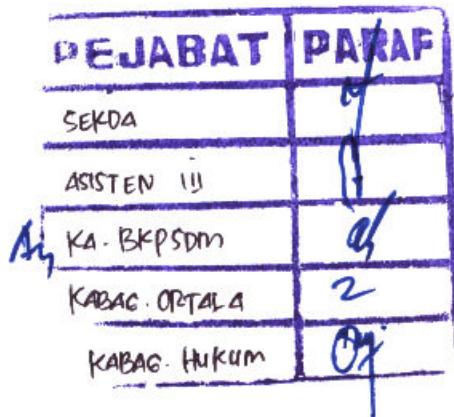 PEJABAT PARAF
SEKDA
ASISTEN III
KA. BKPSDM
KABAG. ORTALA
KABAG. HUKUM